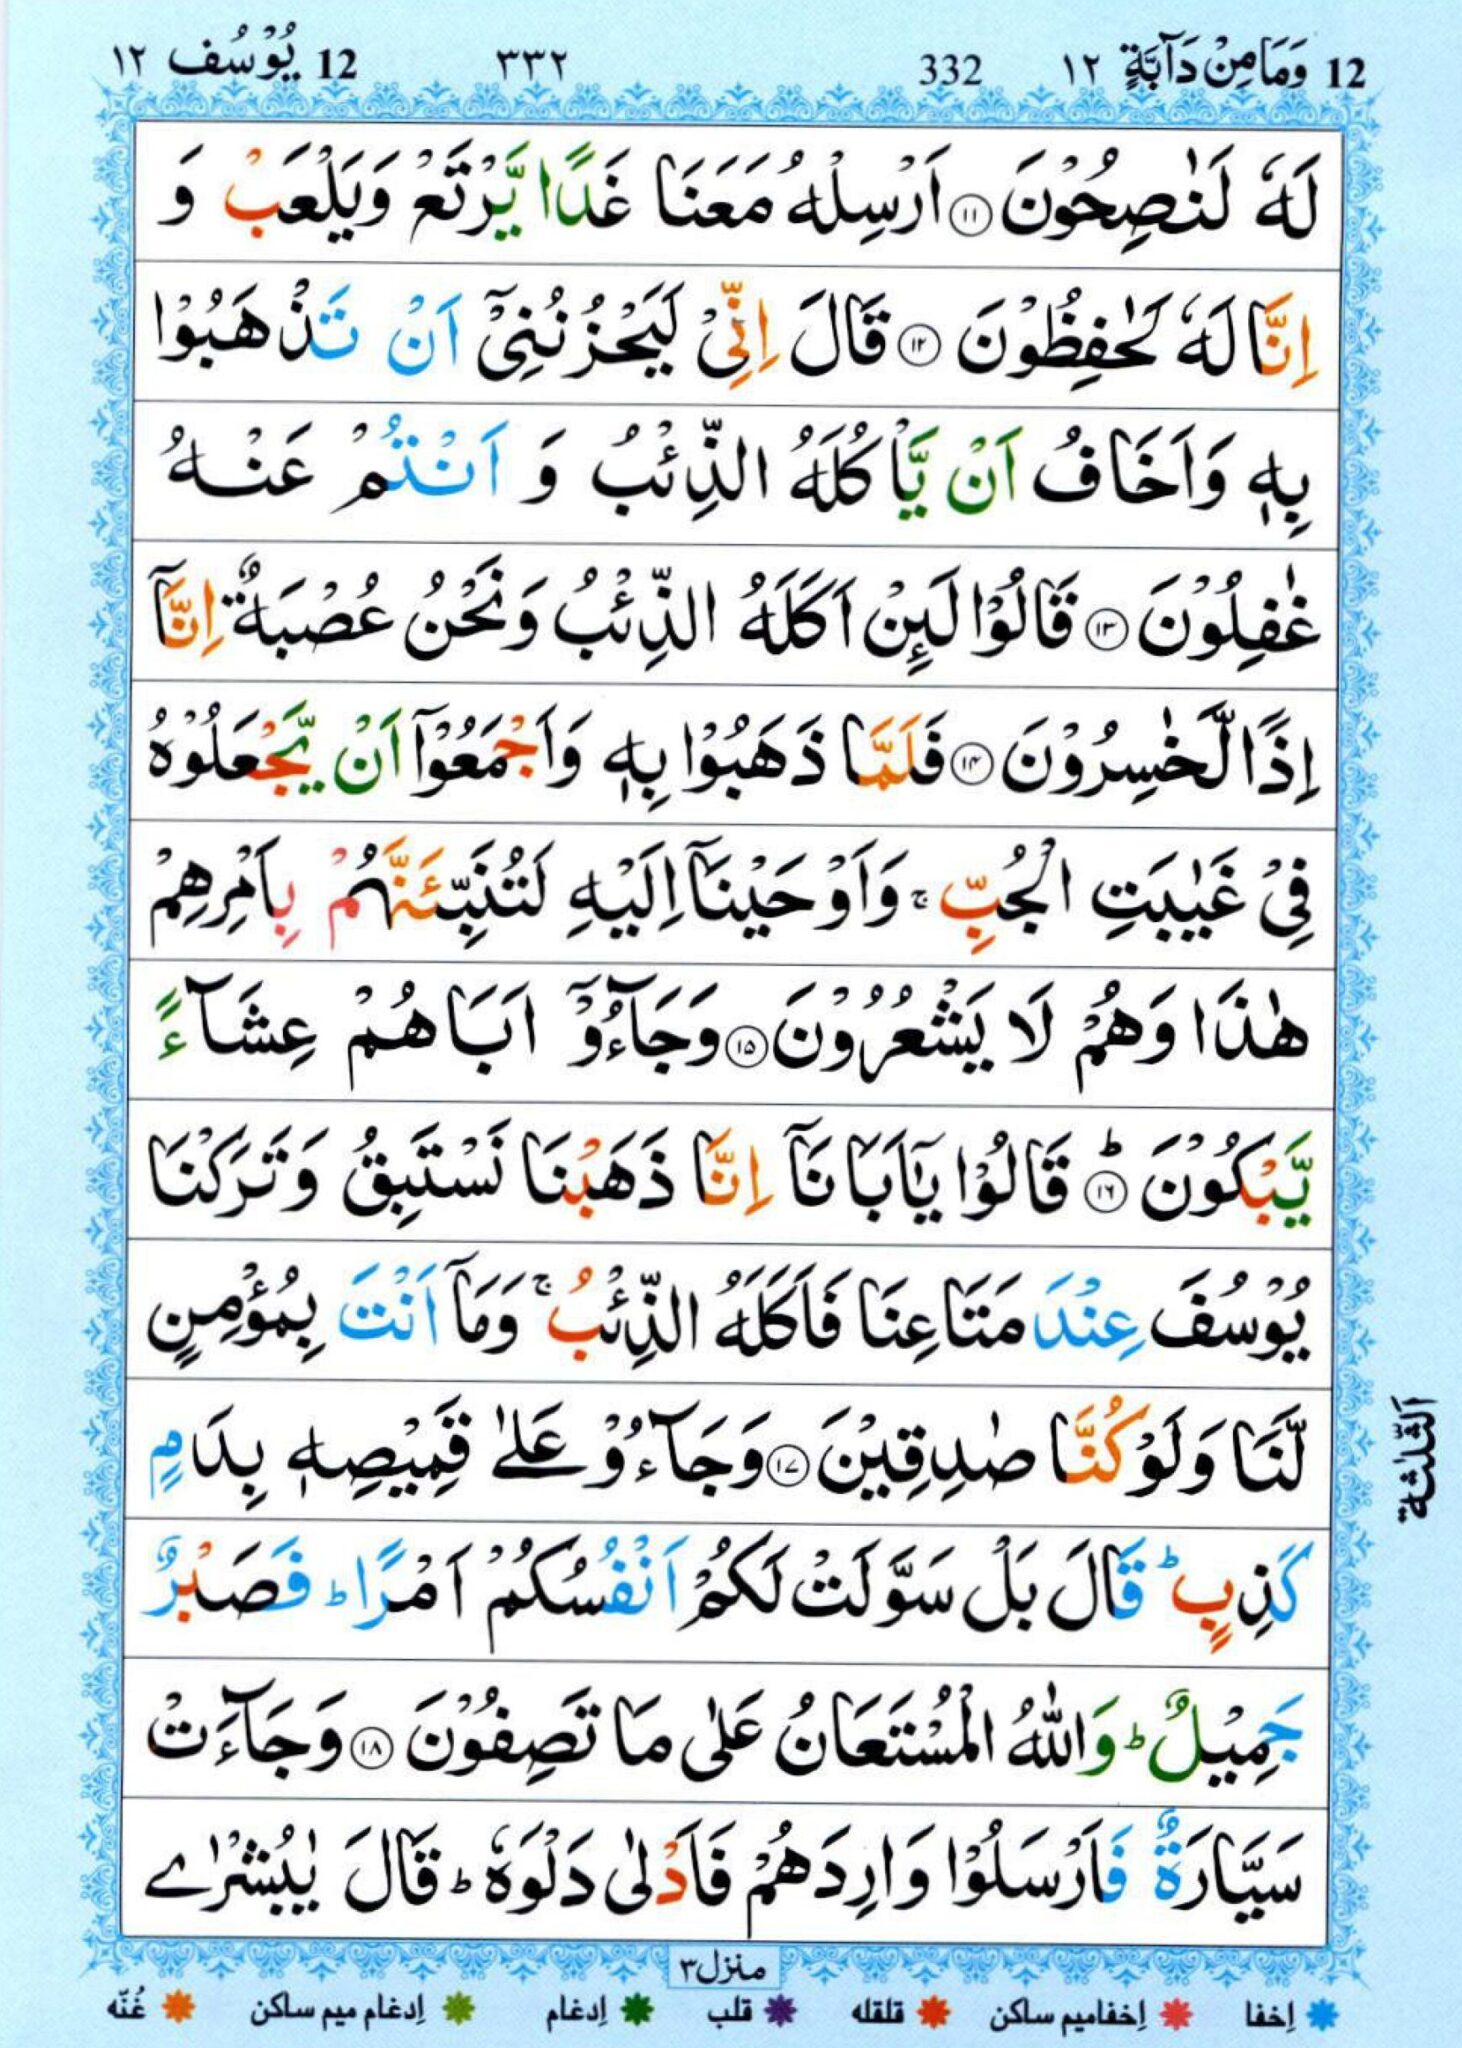 12 وَمَا مِنْ دَآبَّةٍ ١٢ 332 ٣٣٢ 12 يُوْسُف ١٢
لَهٗ لَنٰصِحُوْنَ ﴿۱۱﴾ اَرْسِلْهُ مَعَنَا غَدًا يَّرْتَعْ وَيَلْعَبْ وَ
اِنَّا لَهٗ لَحٰفِظُوْنَ ﴿۱۲﴾ قَالَ اِنِّىْ لَيَحْزُنُنِىْۤ اَنْ تَذْهَبُوْا
بِهٖ وَاَخَافُ اَنْ يَّاْكُلَهُ الذِّئْبُ وَ اَنْتُمْ عَنْهُ
غٰفِلُوْنَ ﴿۱۳﴾ قَالُوْا لَئِنْ اَكَلَهُ الذِّئْبُ وَنَحْنُ عُصْبَةٌ اِنَّاۤ
اِذًا لَّخٰسِرُوْنَ ﴿۱۴﴾ فَلَمَّا ذَهَبُوْا بِهٖ وَاَجْمَعُوْۤا اَنْ يَّجْعَلُوْهُ
فِىْ غَيٰبَتِ الْجُبِّ ۚ وَاَوْحَيْنَاۤ اِلَيْهِ لَتُنَبِّئَنَّهُمْ بِاَمْرِهِمْ
هٰذَا وَهُمْ لَا يَشْعُرُوْنَ ﴿۱۵﴾ وَجَآءُوْۤ اَبَاهُمْ عِشَآءً
يَّبْكُوْنَ ؕ ﴿۱۶﴾ قَالُوْا يٰۤاَبَانَاۤ اِنَّا ذَهَبْنَا نَسْتَبِقُ وَتَرَكْنَا
يُوْسُفَ عِنْدَ مَتَاعِنَا فَاَكَلَهُ الذِّئْبُ ۚ وَمَاۤ اَنْتَ بِمُؤْمِنٍ
لَّنَا وَلَوْ كُنَّا صٰدِقِيْنَ ﴿۱۷﴾ وَجَآءُوْ عَلٰى قَمِيْصِهٖ بِدَمٍ
كَذِبٍ ؕ قَالَ بَلْ سَوَّلَتْ لَكُمْ اَنْفُسُكُمْ اَمْرًا ؕ فَصَبْرٌ
جَمِيْلٌ ؕ وَاللّٰهُ الْمُسْتَعَانُ عَلٰى مَا تَصِفُوْنَ ﴿۱۸﴾ وَجَآءَتْ
سَيَّارَةٌ فَاَرْسَلُوْا وَارِدَهُمْ فَاَدْلٰى دَلْوَهٗ ؕ قَالَ يٰبُشْرٰى
اَلثّلٰثة
منزل ۳
اِخفا اِخفامیم ساکن قلقله قلب اِدغام اِدغام میم ساکن غُنّه